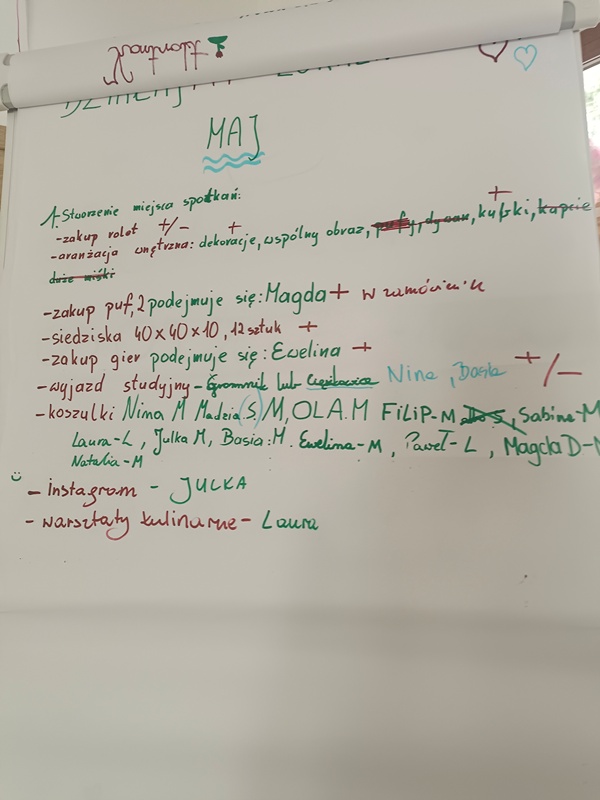 MAJ
1. Stworzenie miejsca spotkań:
-zakup rolet +/-
-aranżacja wnętrza: dekoracje, wspólny obraz, pufy, dywan, kubki, kapcie +
duże miśki
-zakup puf, 2 podejmuje się: Magda + w zamówieniu
-siedziska 40x40x10, 12 sztuk +
-zakup gier podejmuje się: Ewelina +
-wyjazd studyjny - Gromnik lub Ciężkowice Nina, Basia +/-
-koszulki Nina M Madzia (S) M, OLA.M FiLiP-M, Sabina-M
Laura-L, Julka M, Basia:M. Ewelina-M, Paweł-L, Magda D-M
Natalia-M
- instagram - JULKA
- warsztaty kulinarne - Laura